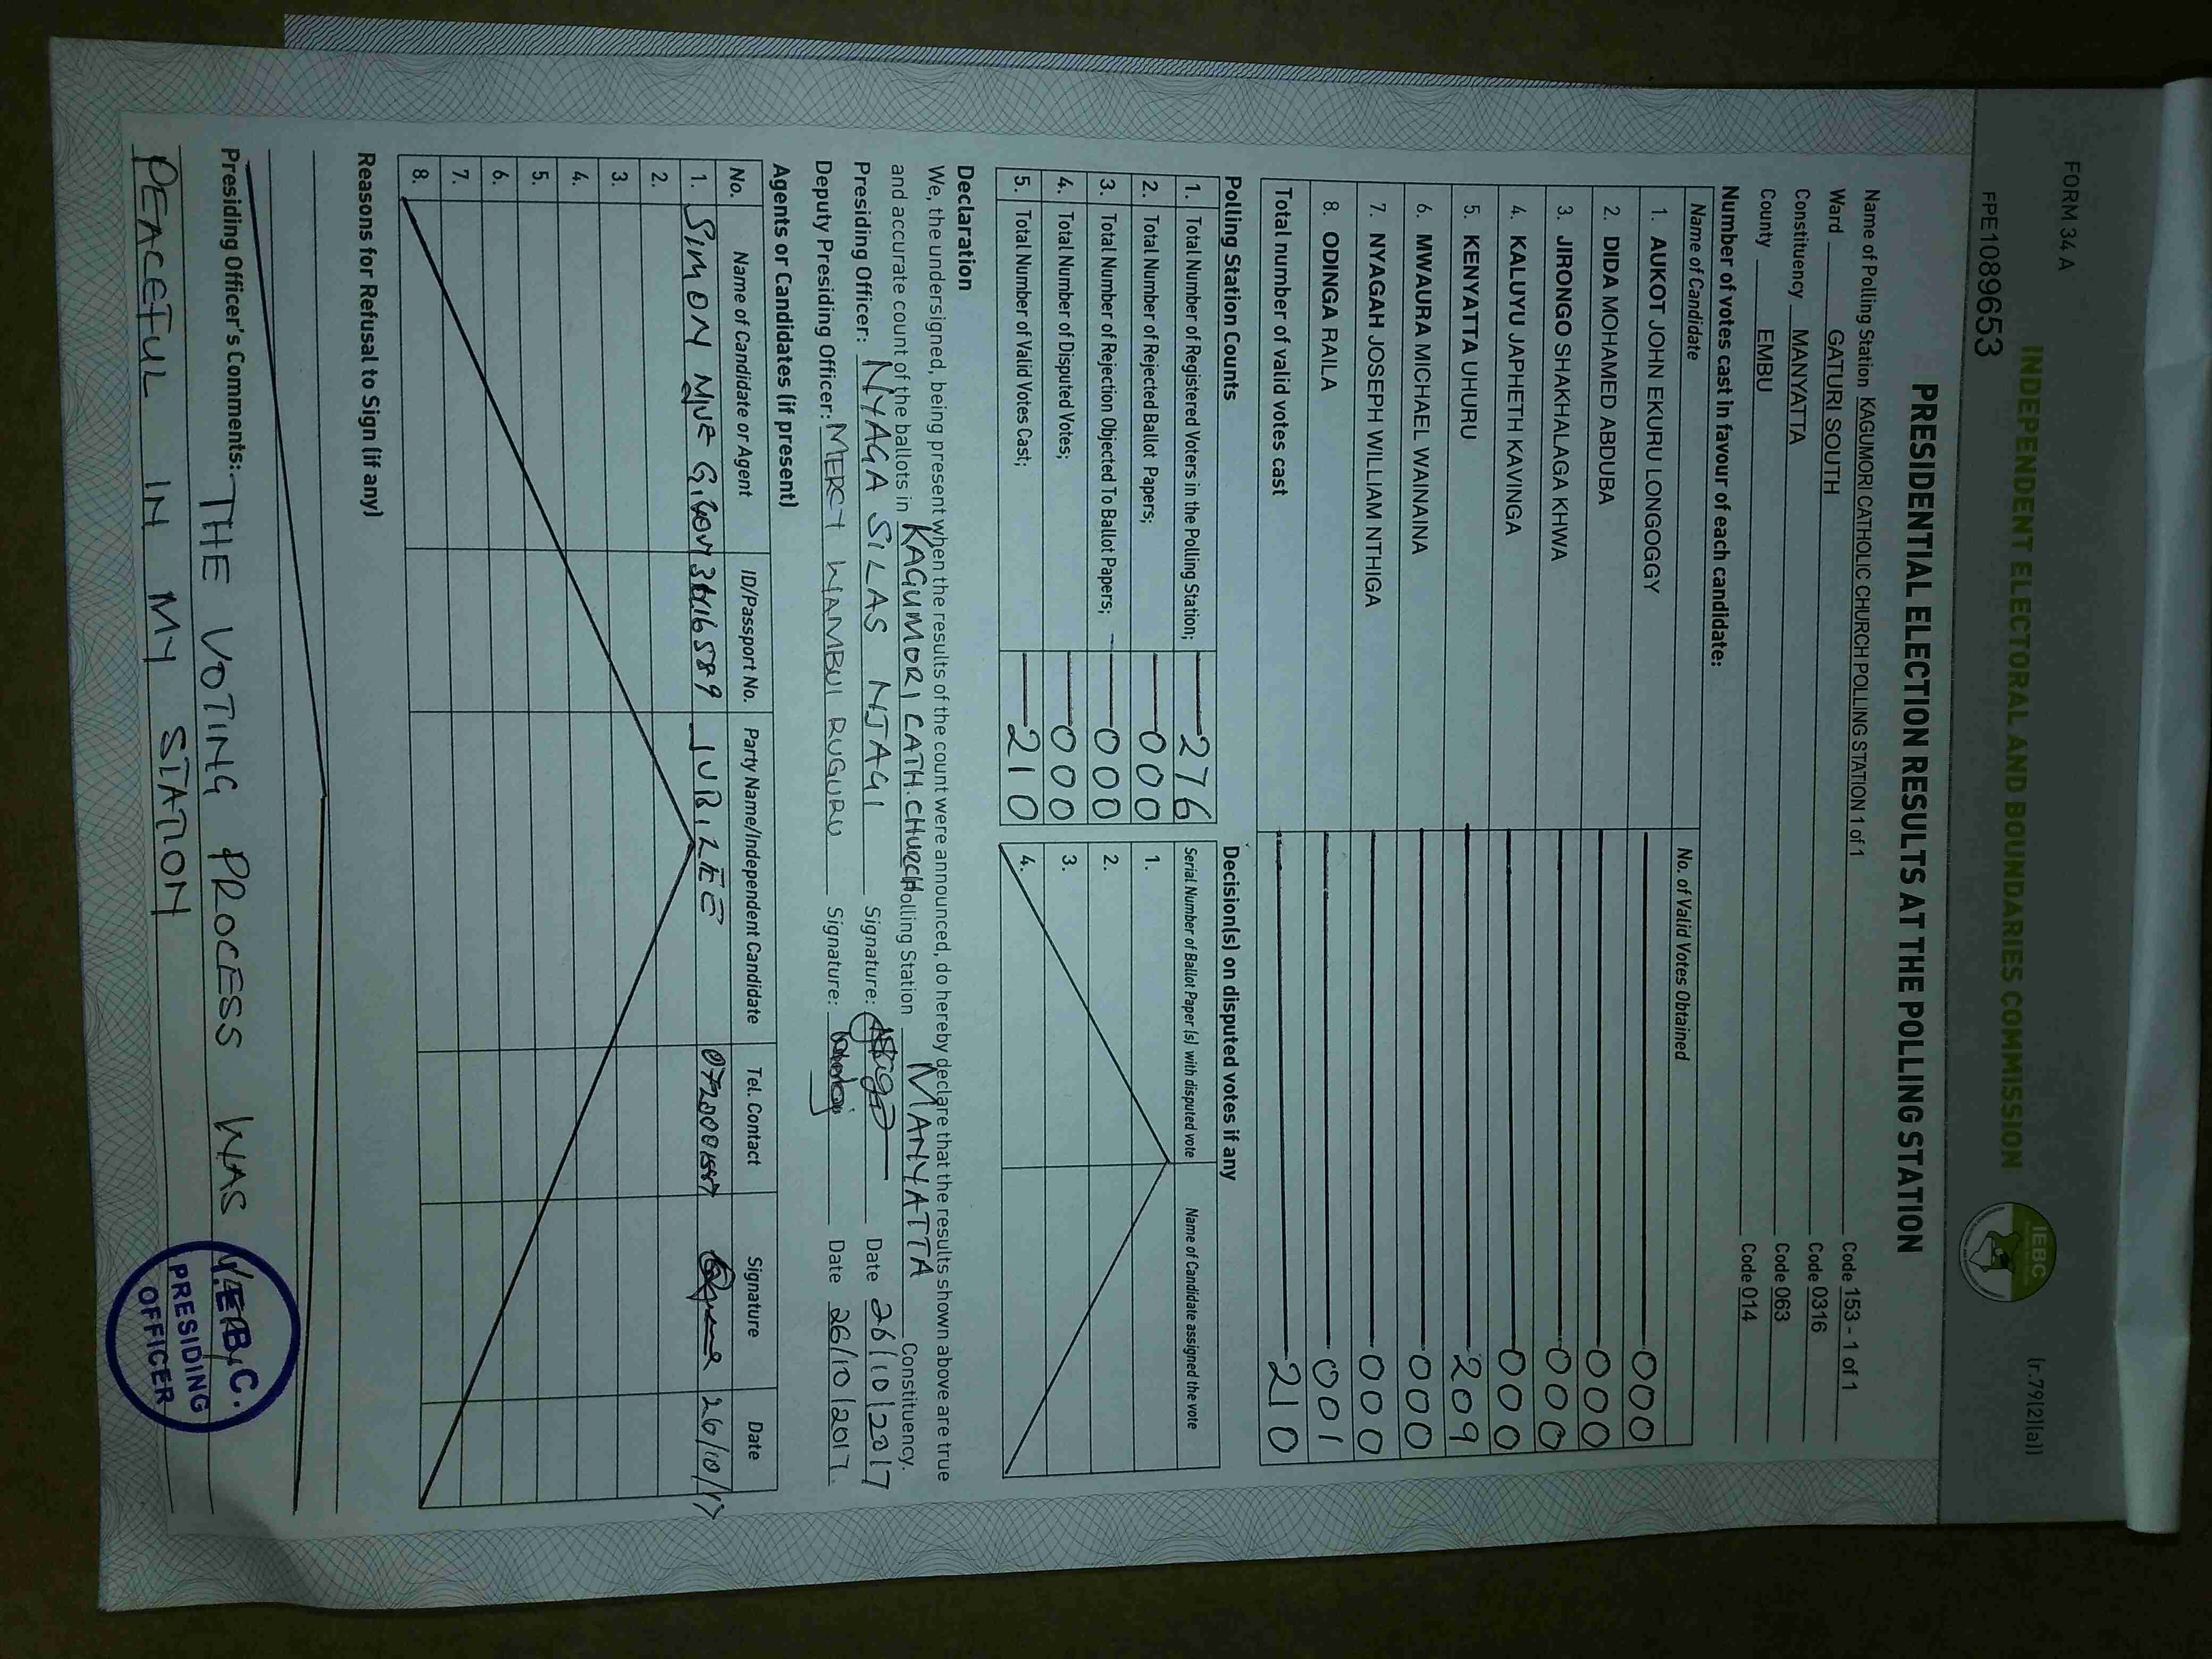 FORM 34 A
(r.79(2)(a))
INDEPENDENT ELECTORAL AND BOUNDARIES COMMISSION
IEBC
FPE1089653
PRESIDENTIAL ELECTION RESULTS AT THE POLLING STATION
Name of Polling Station KAGUMORI CATHOLIC CHURCH POLLING STATION 1 of 1 Code 153 - 1 of 1
Ward GATURI SOUTH Code 0316
Constituency MANYATTA Code 063
County EMBU Code 014
Number of votes cast in favour of each candidate:
Name of Candidate No. of Valid Votes Obtained
1. AUKOT JOHN EKURU LONGOGGY 000
2. DIDA MOHAMED ABDUBA 000
3. JIRONGO SHAKHALAGA KHWA 000
4. KALUYU JAPHETH KAVINGA 000
5. KENYATTA UHURU 209
6. MWAURA MICHAEL WAINAINA 000
7. NYAGAH JOSEPH WILLIAM NTHIGA 000
8. ODINGA RAILA 001
Total number of valid votes cast 210
Polling Station Counts Decision(s) on disputed votes if any
1. Total Number of Registered Voters in the Polling Station; 276 Serial Number of Ballot Paper (s) with disputed vote Name of Candidate assigned the vote
2. Total Number of Rejected Ballot Papers; 000 1.
3. Total Number of Rejection Objected To Ballot Papers; 000 2.
4. Total Number of Disputed Votes; 000 3.
5. Total Number of Valid Votes Cast; 210 4.
Declaration
We, the undersigned, being present when the results of the count were announced, do hereby declare that the results shown above are true
and accurate count of the ballots in KAGUMORI CATH.CHURCH olling Station MANYATTA Constituency.
Presiding Officer: NYAGA SILAS NJAGI Signature: Date 26/10/2017
Deputy Presiding Officer: MERCY WAMBUI RUGURU Signature: Date 26/10/2017.
Agents or Candidates (if present)
No. Name of Candidate or Agent ID/Passport No. Party Name/Independent Candidate Tel. Contact Signature Date
1. SIMON JUBILEE 26/10/17
2.
3.
4.
5.
6.
7.
8.
Reasons for Refusal to Sign (if any)
Presiding Officer's Comments: THE VOTING PROCESS WAS VERY
PEACEFUL IN MY STATION
I.E.B.C.
PRESIDING
OFFICER